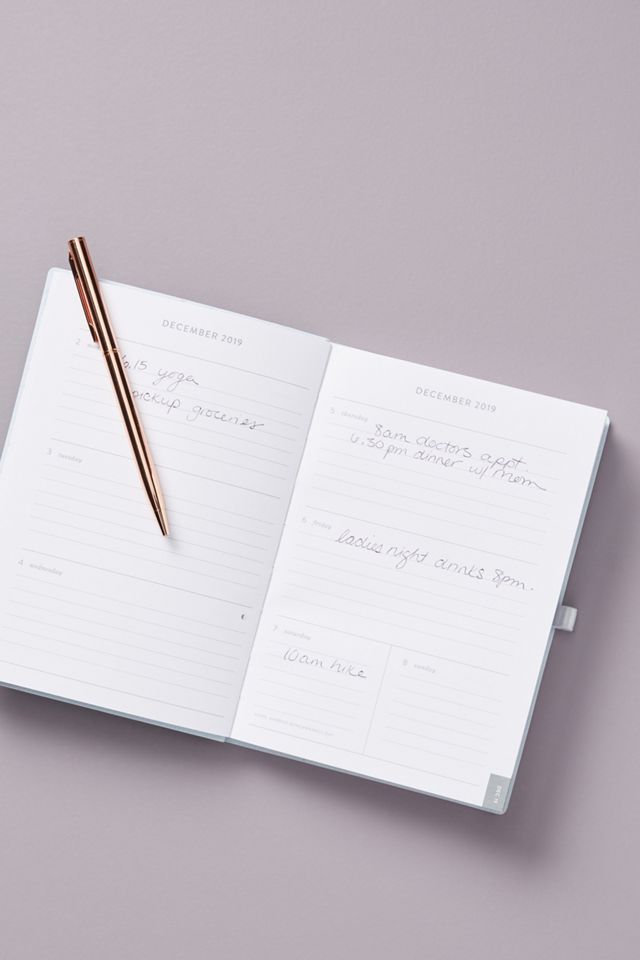 DECEMBER 2019
2
6.15 yoga
pickup groceries
3 tuesday
4 wednesday
DECEMBER 2019
5 thursday
8am doctors appt.
6.30pm dinner w/ mom
6 friday
ladies night drinks 8pm.
7 saturday
10am hike
8 sunday
DEC 19